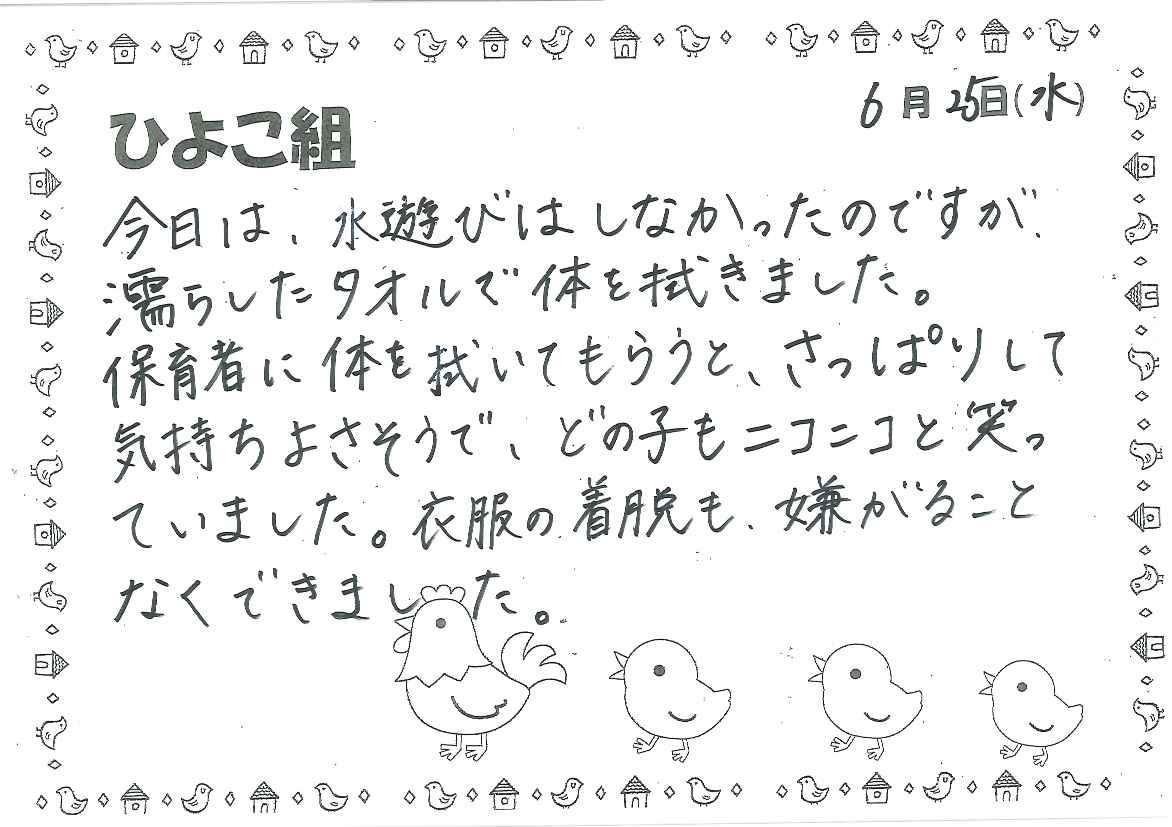 6月25日(水)
ひよこ組
今日は、水遊びはしなかったのですが、
濡らしたタオルで体を拭きました。
保育者に体を拭いてもらうと、さっぱりして
気持ちよさそうで、どの子もニコニコと笑っ
ていました。衣服の着脱も、嫌がること
なくできました。